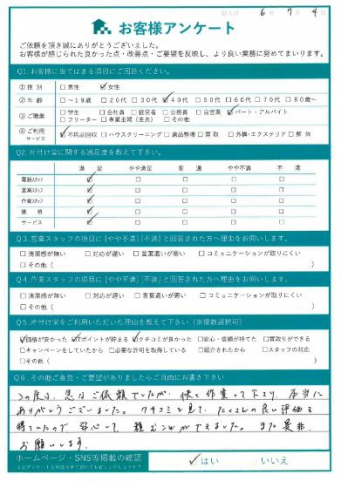 記入日 6年 7月 4日
お客様アンケート
ご依頼を頂き誠にありがとうございました。
お客様が感じられた良かった点・改善点・ご要望を反映し、より良い業務に努めてまいります。
Q1.お客様に当てはまる項目にご回答ください。
①性 別 □男性 ☑女性
②年 齢 □~19歳 □20代 □30代 ☑40代 □50代 □60代 □70代 □80歳~
③ご職業 □学生 □会社員 □経営者 □公務員 □自営業 ☑パート・アルバイト
□フリーター □専業主婦(主夫) □その他
④ご利用サービス ☑不用品回収 □ハウスクリーニング □遺品整理 □買取 □外構・エクステリア □解体
Q2.片付け堂に関する満足度を教えて下さい。
満 足 やや満足 普 通 やや不満 不 満
電話スタッフ ☑ □ □ □ □
営業スタッフ ☑ □ □ □ □
作業スタッフ ☑ □ □ □ □
価 格 ☑ □ □ □ □
サービス ☑ □ □ □ □
Q3.営業スタッフの項目に[やや不満][不満]と回答された方へ理由をお伺いします。
□清潔感が無い □対応が遅い □言葉遣いが悪い □コミュニケーションが取りにくい
□その他( )
Q4.作業スタッフの項目に[やや不満][不満]と回答された方へ理由をお伺いします。
□清潔感が無い □対応が遅い □言葉遣いが悪い □コミュニケーションが取りにくい
□その他( )
Q5.片付け堂をご利用いただいた理由を教えて下さい(※複数選択可)
☑価格が安かった ☑Tポイントが貯まる ☑クチコミが良かった □安心・信頼が持てた □買取りができる
□キャンペーンをしていたから □必要な許可を取得している □紹介されたから □スタッフの対応
□その他( )
Q6.その他ご意見・ご要望がありましたらご自由にお書き下さい
この度は、急なご依頼でしたが、快く作業して下さり、本当に
ありがとうございました。クチコミを見て、たくさんの良い評価を
得ていたので安心して、頼むことができました。また是非、
お願いします。
ホームページ・SNS等掲載の確認
☑はい いいえ